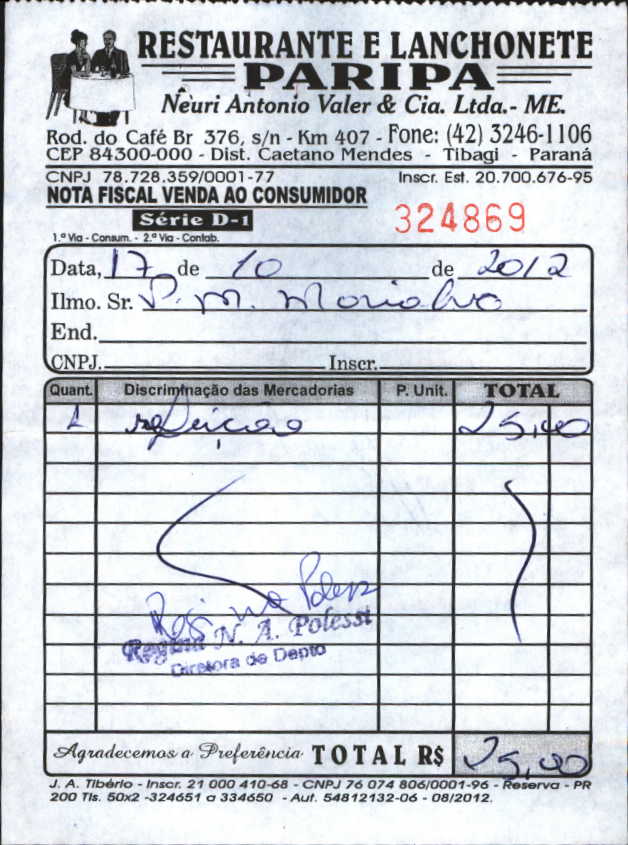 RESTAURANTE E LANCHONETE
PARIPA
Nêuri Antonio Valer & Cia. Ltda.- ME.
Rod. do Café Br 376, s/n - Km 407 - Fone: (42) 3246-1106
CEP 84300-000 - Dist. Caetano Mendes - Tibagi - Paraná
CNPJ 78.728.359/0001-77 Inscr. Est. 20.700.676-95
NOTA FISCAL VENDA AO CONSUMIDOR
Série D-1 324869
1.ª Via - Consum. - 2.ª Via - Contab.
Data, 17 de 10 de 2012
Ilmo. Sr. P. M. Marialva
End.
CNPJ. Inscr.
Quant. Discriminação das Mercadorias P. Unit. TOTAL
1 refeição 25,00
Regina N. A. Polessi
Diretora de Depto
Agradecemos a Preferência TOTAL R$ 25,00
J. A. Tibério - Inscr. 21 000 410-68 - CNPJ 76 074 806/0001-96 - Reserva - PR
200 Tls. 50x2 -324651 a 334650 - Aut. 54812132-06 - 08/2012.